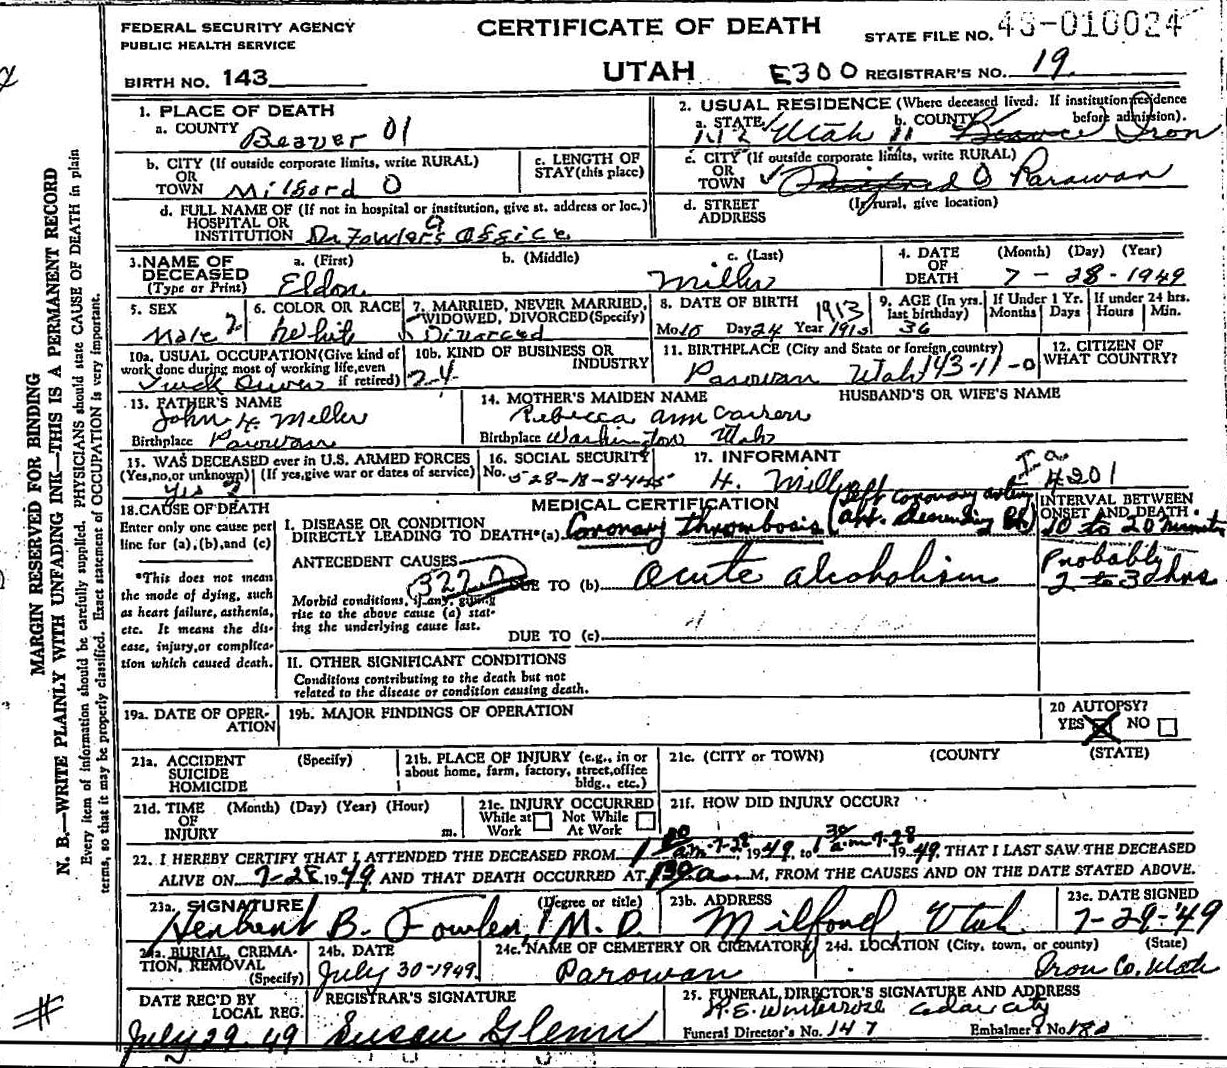 FEDERAL SECURITY AGENCY
PUBLIC HEALTH SERVICE
CERTIFICATE OF DEATH
STATE FILE NO. 49-010024
BIRTH NO. 143
UTAH
E300 REGISTRAR'S NO. 19
1. PLACE OF DEATH
a. COUNTY Beaver 01
2. USUAL RESIDENCE (Where deceased lived. If institution: residence before admission).
a. STATE Utah b. COUNTY Iron
b. CITY (If outside corporate limits, write RURAL)
OR
TOWN Milford 0
c. LENGTH OF
STAY (this place)
c. CITY (If outside corporate limits, write RURAL)
OR
TOWN 0 Parowan
d. FULL NAME OF (If not in hospital or institution, give st. address or loc.)
HOSPITAL OR
INSTITUTION Dr. Fowler's Office
d. STREET
ADDRESS
(If rural, give location)
3. NAME OF
DECEASED
(Type or Print)
a. (First) Eldon
b. (Middle)
c. (Last) Miller
4. DATE
OF
DEATH
(Month) (Day) (Year)
7-28-1949
5. SEX
Male 2
6. COLOR OR RACE
White
7. MARRIED, NEVER MARRIED,
WIDOWED, DIVORCED (Specify)
Divorced
8. DATE OF BIRTH 1913
Mo 10 Day 24 Year 1913
9. AGE (In yrs.
last birthday)
36
If Under 1 Yr.
Months Days
If under 24 hrs.
Hours Min.
10a. USUAL OCCUPATION (Give kind of
work done during most of working life, even
if retired)
Truck Driver
10b. KIND OF BUSINESS OR
INDUSTRY
7-4
11. BIRTHPLACE (City and State or foreign country)
Parowan Utah 143-11-0
12. CITIZEN OF
WHAT COUNTRY?
13. FATHER'S NAME
John H. Miller
Birthplace Parowan
14. MOTHER'S MAIDEN NAME
Rebecca Ann
Birthplace Washington Utah
HUSBAND'S OR WIFE'S NAME
15. WAS DECEASED ever in U.S. ARMED FORCES
(Yes, no, or unknown) (If yes, give war or dates of service)
Yes 2
16. SOCIAL SECURITY
No. 528-18-8445
17. INFORMANT
H. Miller
4201
18. CAUSE OF DEATH
Enter only one cause per
line for (a), (b), and (c)
*This does not mean
the mode of dying, such
as heart failure, asthenia,
etc. It means the dis-
ease, injury, or complica-
tion which caused death.
MEDICAL CERTIFICATION
I. DISEASE OR CONDITION
DIRECTLY LEADING TO DEATH* (a) Coronary thrombosis (left coronary artery
ant. descending Br.)
INTERVAL BETWEEN
ONSET AND DEATH
10 to 20 minutes
ANTECEDENT CAUSES
322.0
Morbid conditions, if any, giving
rise to the above cause (a) stat-
ing the underlying cause last.
DUE TO (b) acute alcoholism
Probably
2 to 3 hrs
DUE TO (c)
II. OTHER SIGNIFICANT CONDITIONS
Conditions contributing to the death but not
related to the disease or condition causing death.
19a. DATE OF OPER-
ATION
19b. MAJOR FINDINGS OF OPERATION
20 AUTOPSY?
YES X NO
21a. ACCIDENT
SUICIDE
HOMICIDE
(Specify)
21b. PLACE OF INJURY (e.g., in or
about home, farm, factory, street, office
bldg., etc.)
21c. (CITY OR TOWN) (COUNTY) (STATE)
21d. TIME
OF
INJURY
(Month) (Day) (Year) (Hour)
m.
21e. INJURY OCCURRED
While at Work Not While At Work
21f. HOW DID INJURY OCCUR?
22. I HEREBY CERTIFY THAT I ATTENDED THE DECEASED FROM a.m. 7-28, 1949, to 1 30 a.m. 7-28 1949 THAT I LAST SAW THE DECEASED
ALIVE ON 7-28 1949 AND THAT DEATH OCCURRED AT 1 30 a M, FROM THE CAUSES AND ON THE DATE STATED ABOVE.
23a. SIGNATURE (Degree or title)
Herbert B. Fowler, M.D.
23b. ADDRESS
Milford, Utah
23c. DATE SIGNED
7-29-'49
24a. BURIAL, CREMA-
TION, REMOVAL
(Specify)
24b. DATE
July 30-1949
24c. NAME OF CEMETERY OR CREMATORY
Parowan
24d. LOCATION (City, town, or county) (State)
Iron Co. Utah
DATE REC'D BY
LOCAL REG.
July 29 49
REGISTRAR'S SIGNATURE
Susan Glenn
25. FUNERAL DIRECTOR'S SIGNATURE AND ADDRESS
R.E. Winterrose Cedar City
Funeral Director's No. 147 Embalmer's No. 180
MARGIN RESERVED FOR BINDING
N. B.—WRITE PLAINLY WITH UNFADING INK—THIS IS A PERMANENT RECORD
Every item of information should be carefully supplied. PHYSICIANS should state CAUSE OF DEATH in plain
terms, so that it may be properly classified. Exact statement of OCCUPATION is very important.